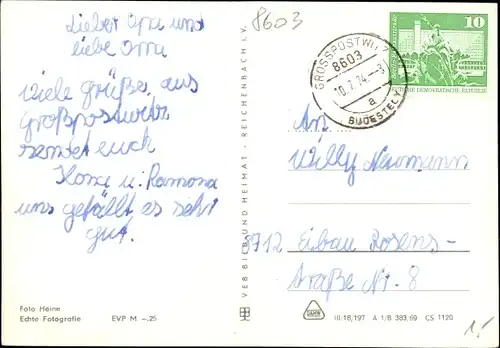 Lieber Opa und
liebe Oma
Viele Grüße aus
Großpostwitz
sendet euch
u. Ramona
uns gefällt es sehr
gut.
Foto Heine
Echte Fotografie EVP M -.25
VEB BILD UND HEIMAT · REICHENBACH I.V.
8603
GROSSPOSTWITZ
8603
10.7.74
a
BUDESTELY
10
DEMOKRATISCHE REPUBLIK
An
Willy Neumann
8712 Eibau Rosens-
traße Nr. 8
III/18/197 A 1/B 383/69 CS 1120